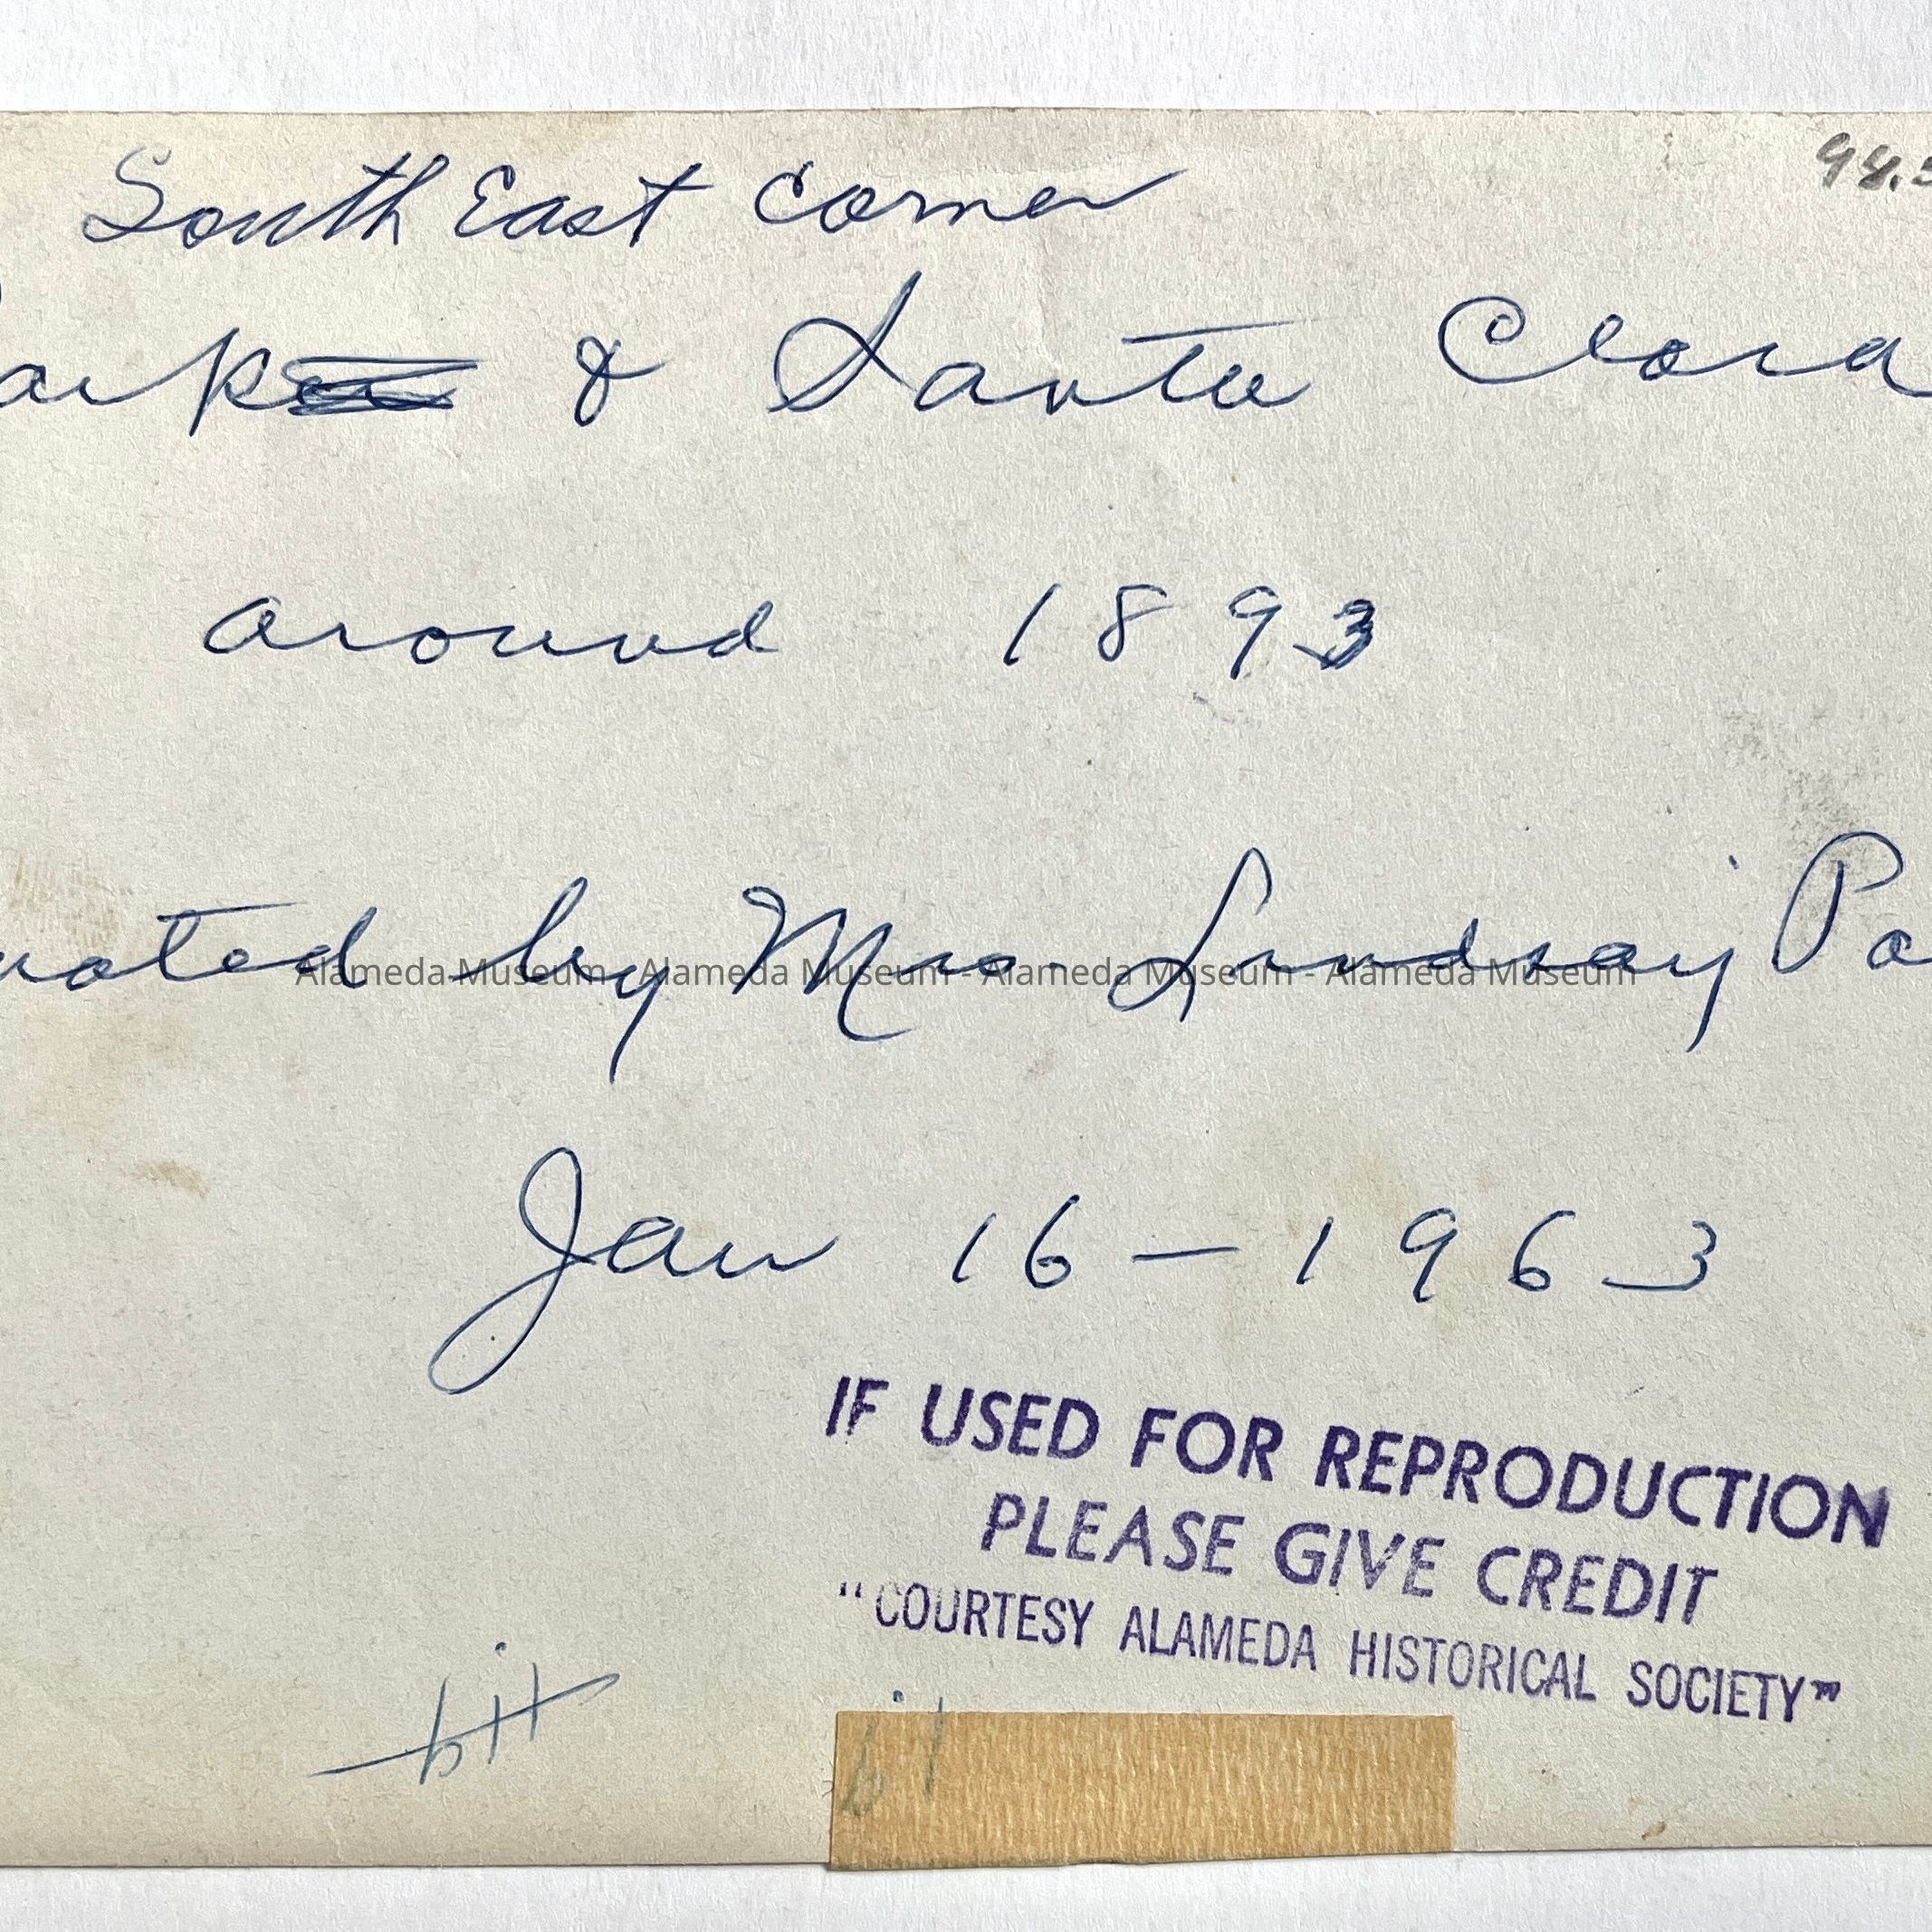 98.
South East Corner
ark & Santa Clara
around 1893
nated by Mrs. Lindsay Po
Alameda Museum - Alameda Museum - Alameda Museum - Alameda Museum
Jan 16 - 1963
IF USED FOR REPRODUCTION
PLEASE GIVE CREDIT
"COURTESY ALAMEDA HISTORICAL SOCIETY"